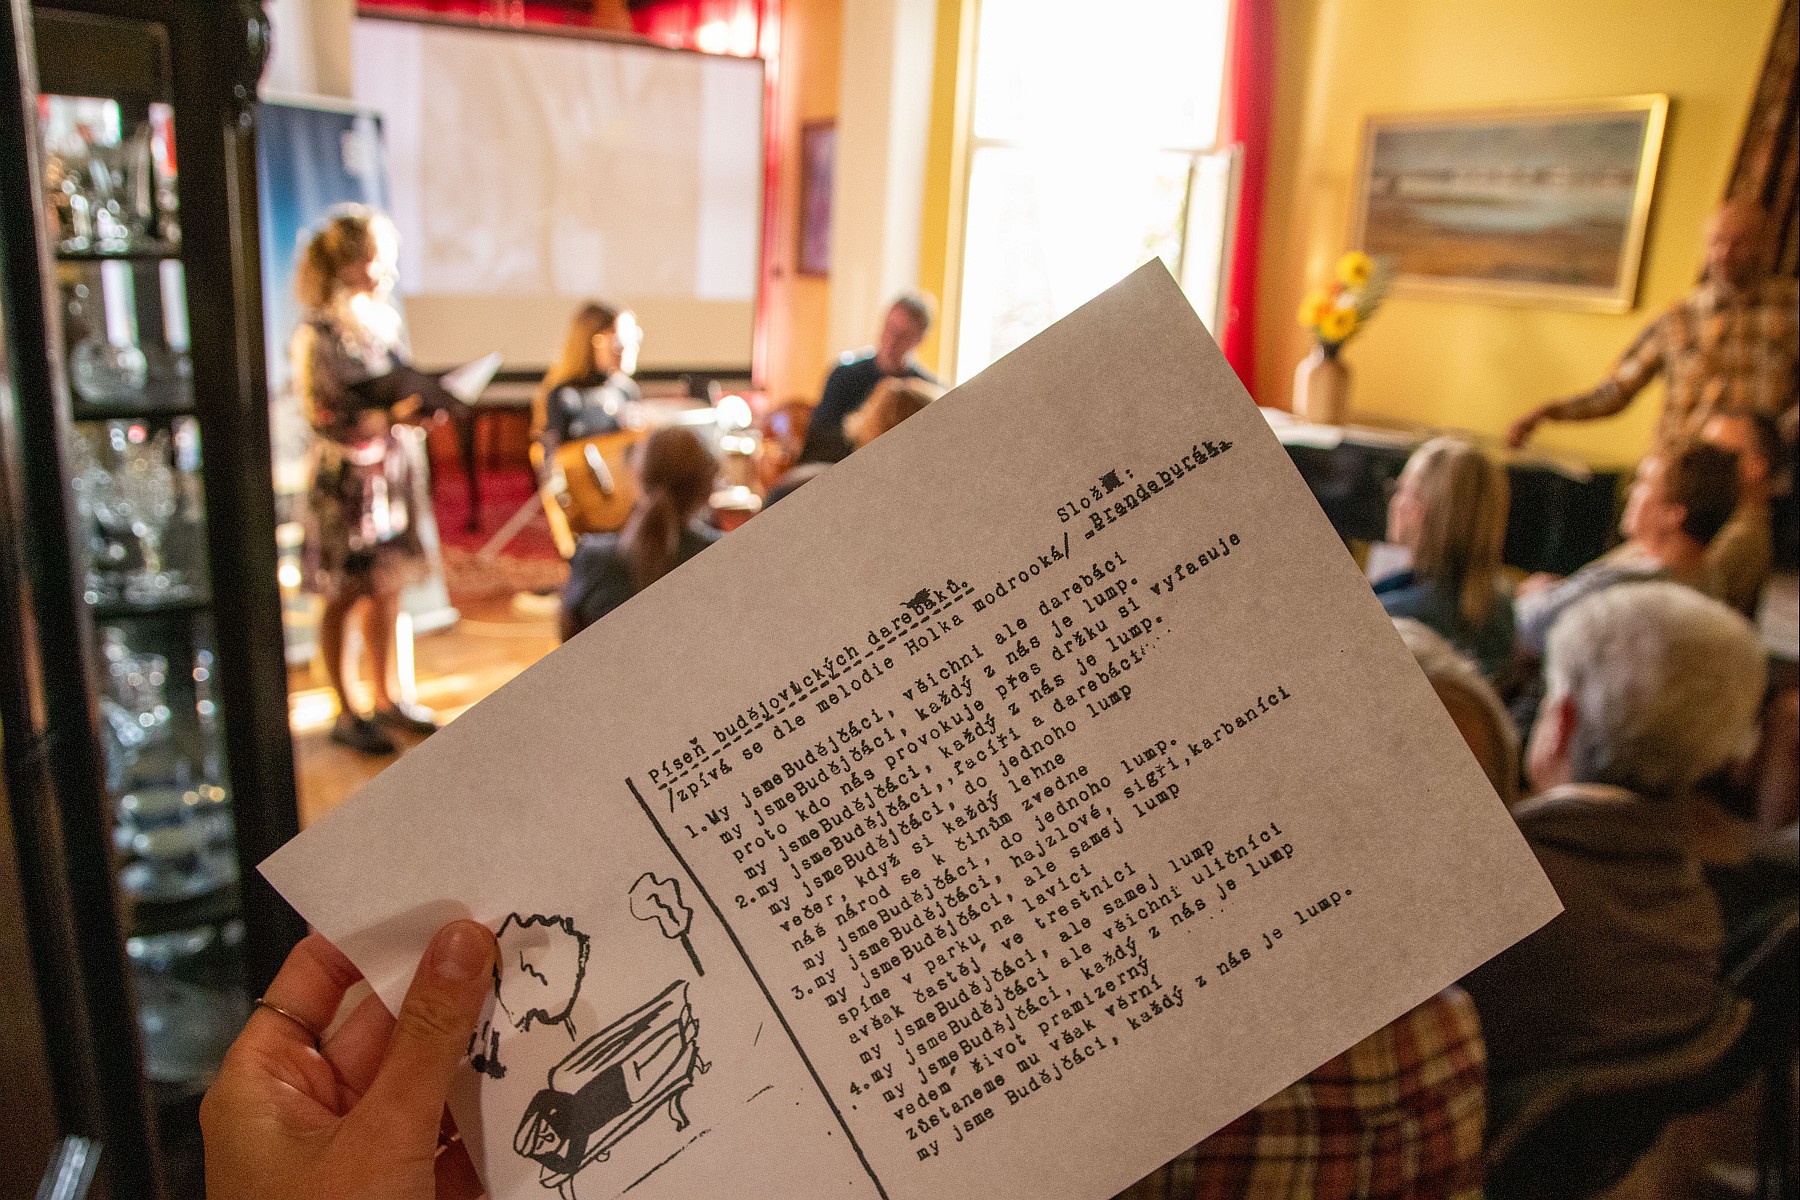 Složil:
Píseň budějovických darebáků.
/zpívá se dle melodie Holka modrooká/ Brandeburák.
1.My jsmeBudějčáci, všichni ale darebáci
my jsmeBudějčáci, každý z nás je lump.
proto kdo nás provokuje přes držku si vyfasuje
my jsmeBudějčáci, každý z nás je lump.
2.my jsmeBudějčáci,,facíři a darebáci
my jsmeBudějčáci, do jednoho lump
večer, když si každý lehne
náš národ se k činům zvedne
my jsmeBudějčáci, do jednoho lump.
3.my jsmeBudějčáci, hajzlové, sigři,karbaníci
my jsmeBudějčáci, ale samej lump
spíme v parku na lavici
avšak častěj ve trestnici
my jsmeBudějčáci, ale samej lump
4.my jsmeBudějčáci ale všichni uličníci
my jsmeBudějčáci, každý z nás je lump
vedem život pramizerný
zůstaneme mu však věrní
my jsme Budějčáci, každý z nás je lump.